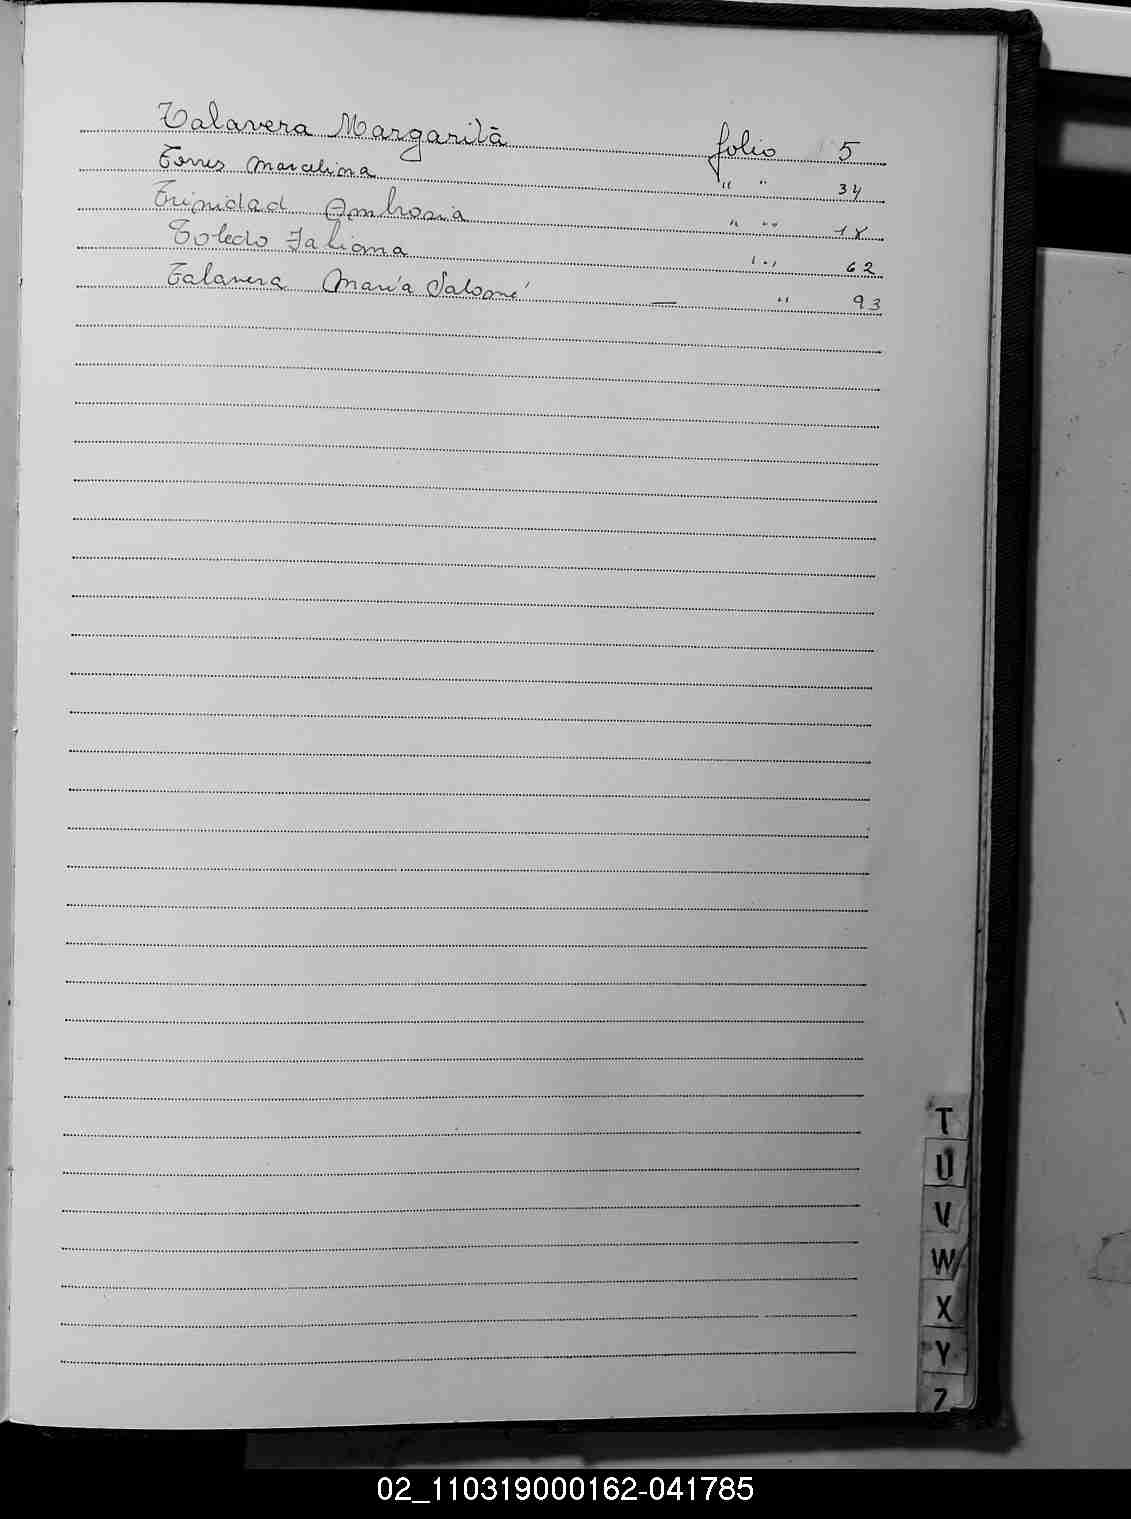 Talavera Margarita folio 5
Torres Marcelina " " 34
Trinidad Ambrosia " "
Toledo Fabiana " " 62
Talavera María Salomé — " 93
T
U
V
W
X
Y
Z
02_110319000162-041785